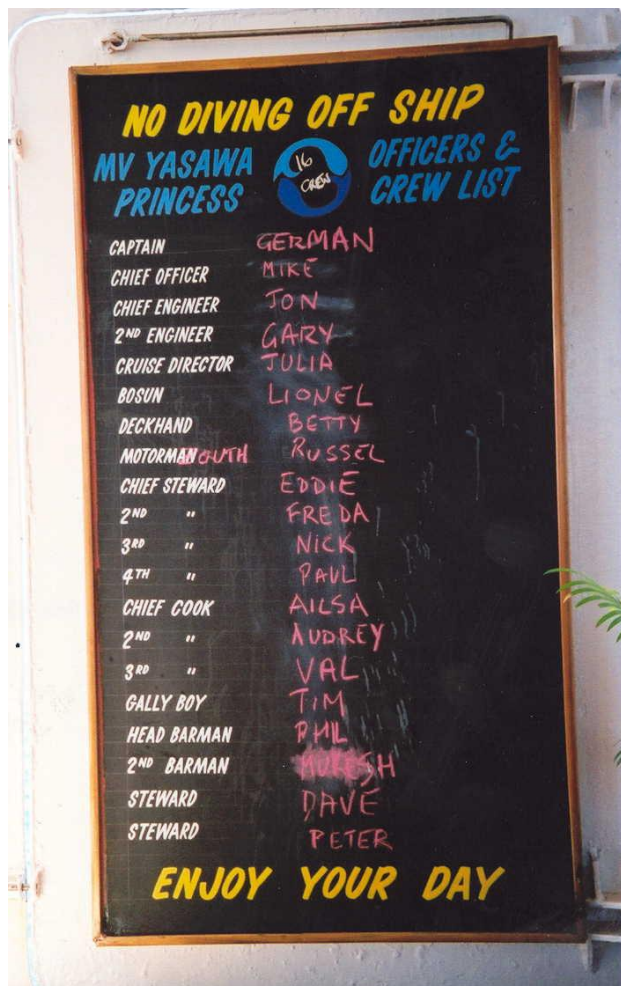 NO DIVING OFF SHIP
MV YASAWA PRINCESS
16 CREW
OFFICERS & CREW LIST
CAPTAIN GERMAN
CHIEF OFFICER MIKE
CHIEF ENGINEER JON
2ND ENGINEER GARY
CRUISE DIRECTOR JULIA
BOSUN LIONEL
DECKHAND BETTY
MOTORMAN MOUTH RUSSEL
CHIEF STEWARD EDDIE
2ND " FREDA
3RD " NICK
4TH " PAUL
CHIEF COOK AILSA
2ND " AUDREY
3RD " VAL
GALLY BOY TIM
HEAD BARMAN PHIL
2ND BARMAN MUKESH
STEWARD DAVE
STEWARD PETER
ENJOY YOUR DAY